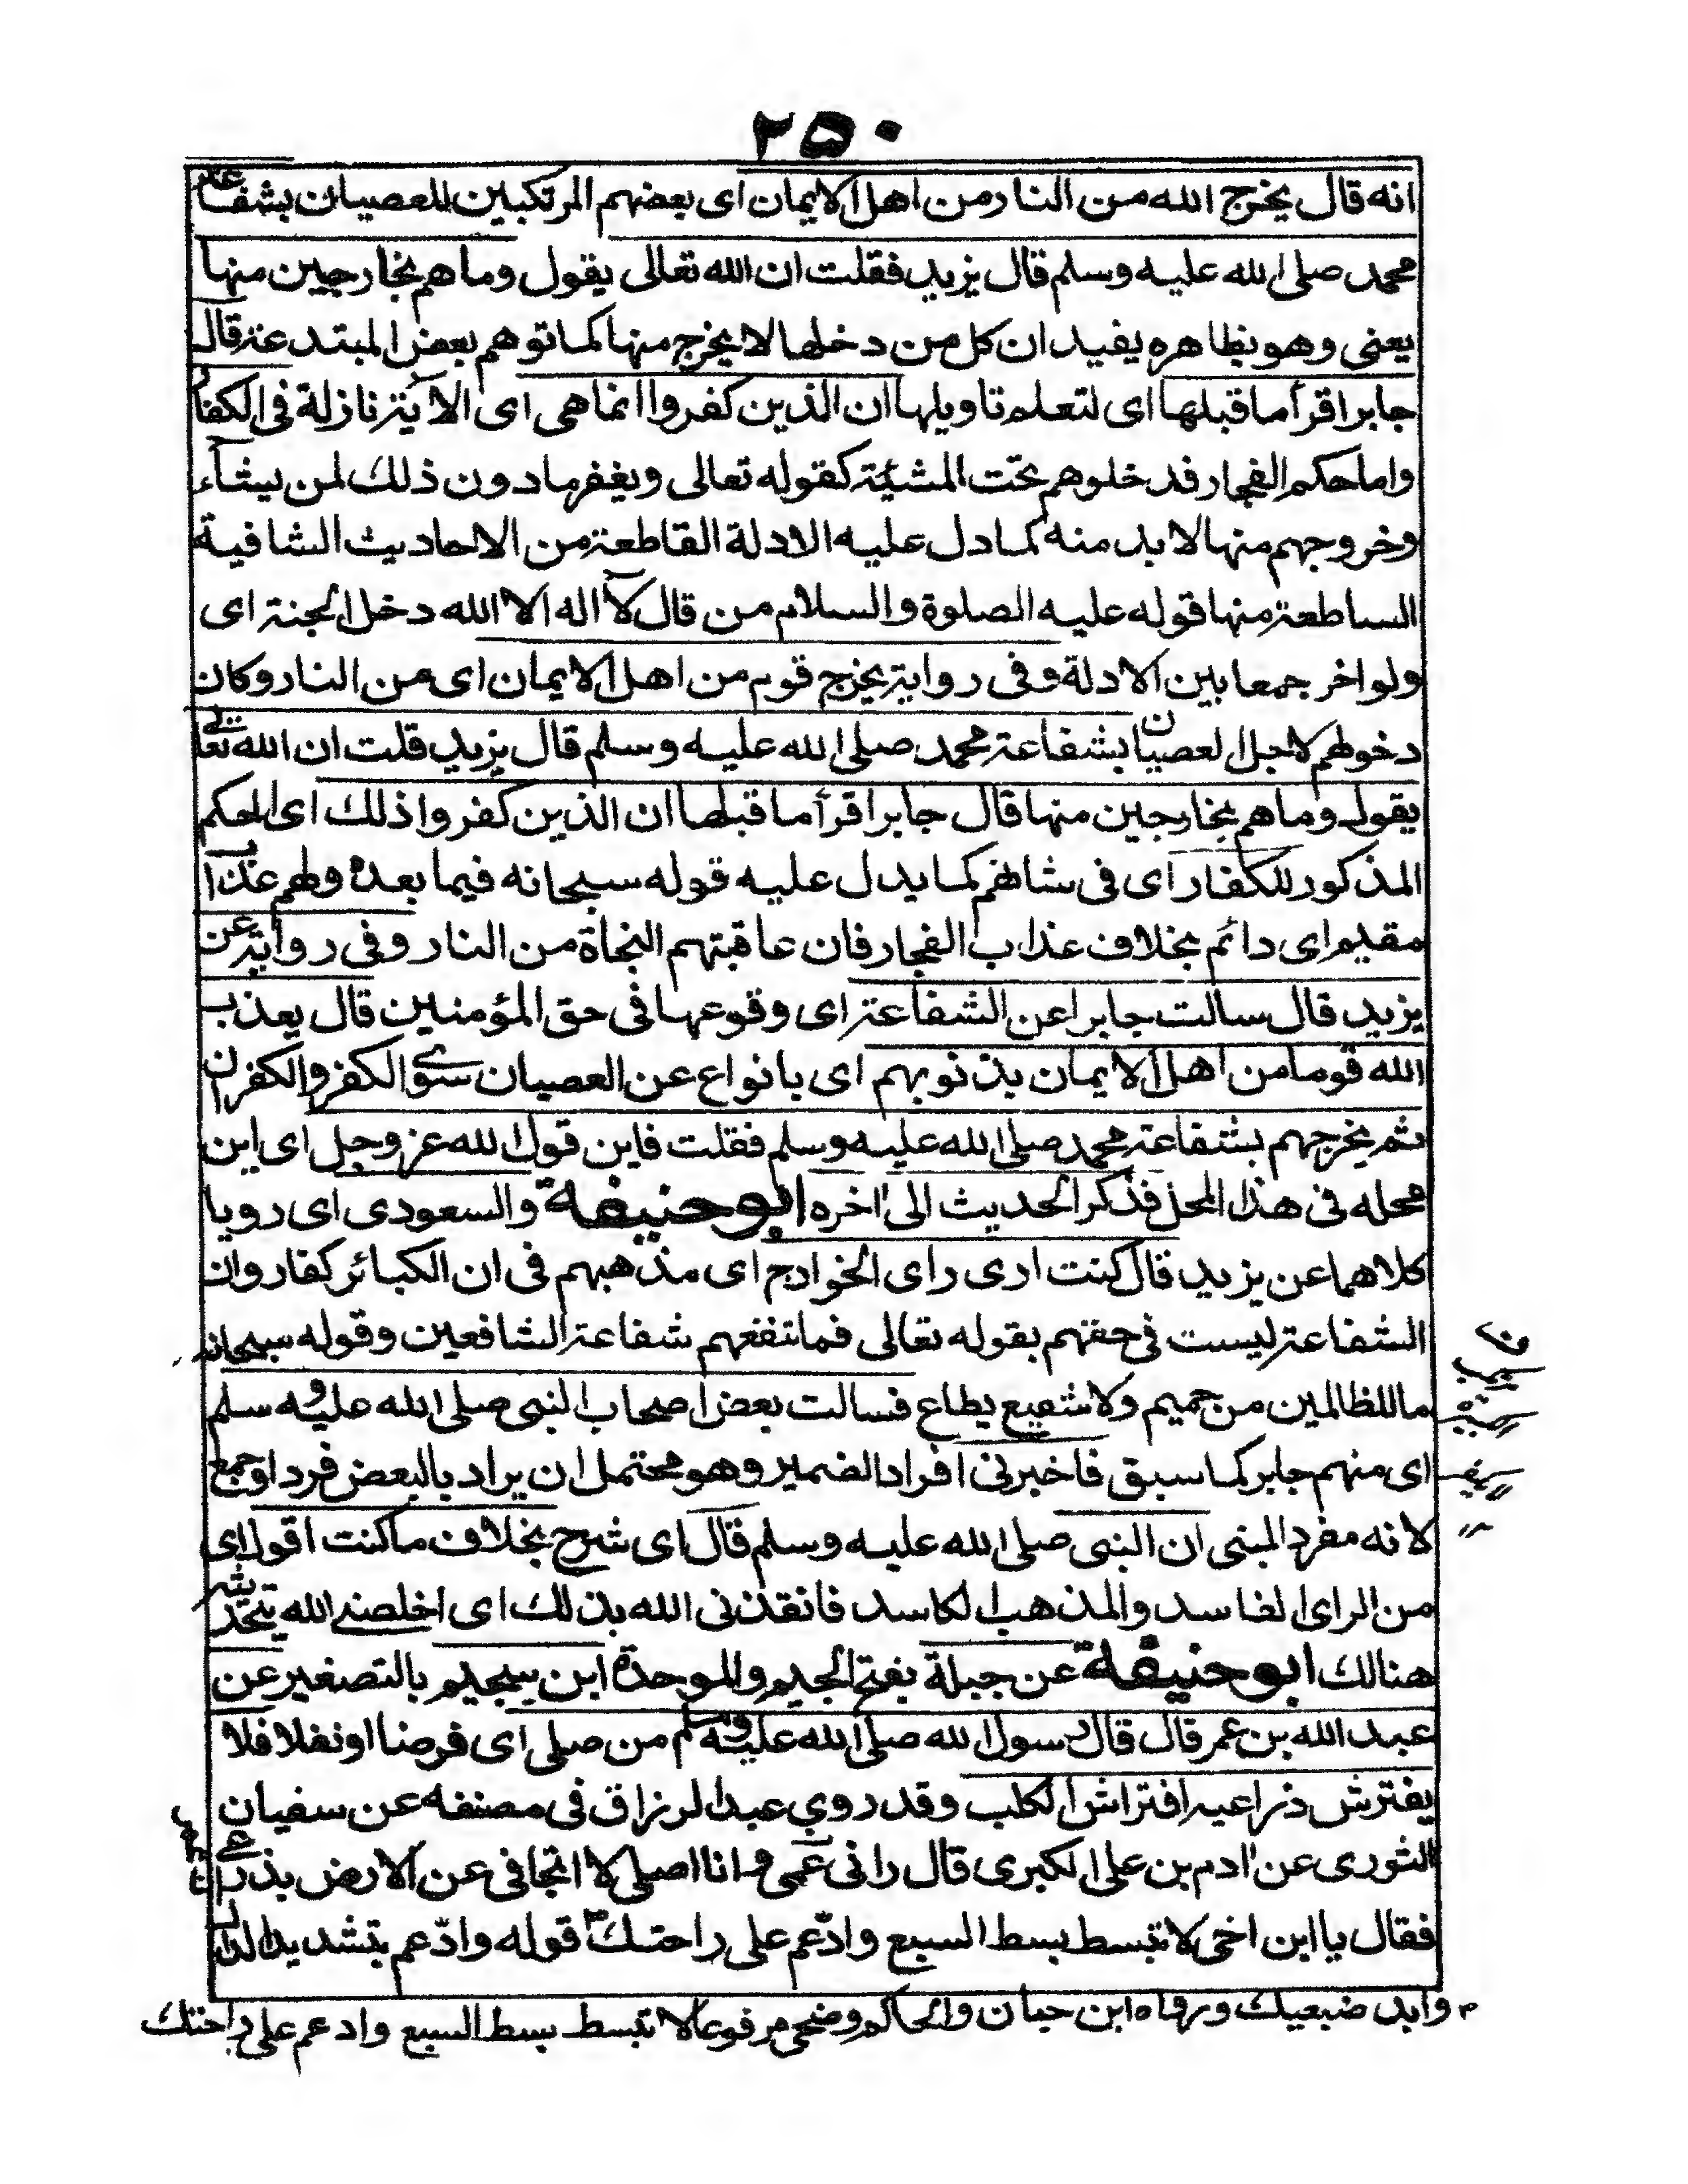 ٢٥٠
انه قال يخرج الله من النار من اهل الايمان اى بعضهم المرتكبين للعصيان بشفاعة
محمد صلى الله عليه وسلم قال يزيد فقلت ان الله تعالى يقول وما هم بخارجين منها
يعنى وهو بظاهره يفيد ان كل من دخلها لا يخرج منها كما توهم بعض المبتدعة قال
جابر اقرأ ما قبلها اى لتعلم تاويلها ان الذين كفروا انما هى اى الآية نازلة فى الكفار
واما حكم الفجار فدخلوهم تحت المشيّة كقوله تعالى ويغفر ما دون ذلك لمن يشآء
وخروجهم منها لا بد منه كما دل عليه الادلة القاطعة من الاحاديث الشافية
الساطعة منها قوله عليه الصلوة والسلام من قال لآ اله الا الله دخل الجنة اى
ولو اخر جمعا بين الادلة وفى رواية يخرج قوم من اهل الايمان اى من النار وكان
دخولهم لاجل العصيان بشفاعة محمد صلى الله عليه وسلم قال يزيد قلت ان الله تعالى
يقول وما هم بخارجين منها قال جابر اقرأ ما قبلها ان الذين كفروا ذلك اى الحكم
المذكور للكفار اى فى شانهم كما يدل عليه قوله سبحانه فيما بعده ولهم عذاب
مقيم اى دائم بخلاف عذاب الفجار فان عاقبتهم النجاة من النار وفى رواية عن
يزيد قال سالت جابرا عن الشفاعة اى وقوعها فى حق المؤمنين قال يعذب
الله قوما من اهل الايمان بذنوبهم اى بانواع عن العصيان سوى الكفر والكفران
ثم يخرجهم بشفاعة محمد صلى الله عليه وسلم فقلت فاين قول الله عز وجل اى اين
محله فى هذا المحل فذكر الحديث الى اخره ابو حنيفة والسعودى اى رويا
كلاهما عن يزيد قال كنت ارى راى الخوارج اى مذهبهم فى ان الكبائر كفار وان
الشفاعة ليست فى حقهم بقوله تعالى فما تنفعهم شفاعة الشافعين وقوله سبحانه
ما للظالمين من حميم ولا شفيع يطاع فسالت بعض اصحاب النبى صلى الله عليه وسلم
اى منهم جابر كما سبق فاخبرنى افراد الضمير وهو محتمل ان يراد بالبعض فردا وجمع
لانه مفرد المبنى ان النبى صلى الله عليه وسلم قال اى شرح بخلاف ما كنت اقول اى
من الراى الفاسد والمذهب الكاسد فانقذنى الله بذلك اى اخلصنى الله بتحديثه
هنالك ابو حنيفة عن جبلة بفتح الجيم والموحدة ابن سحيم بالتصغير عن
عبد الله بن عمر قال قال رسول الله صلى الله عليه وسلم من صلى اى فرضا او نفلا فلا
يفترش ذراعيه افتراش الكلب وقد روى عبد الرزاق فى مصنفه عن سفيان
الثورى عن ادم بن على البكرى قال رانى عمى وانا اصلى لا اتجافى عن الارض بذراعى
فقال يا ابن اخى لا تبسط بسط السبع وادّعم على راحتك قوله وادّعم بتشديد الدال
وابد ضبعيك ورواه ابن حبان والحاكم مرفوعا لا تبسط بسط السبع وادعم على راحتك